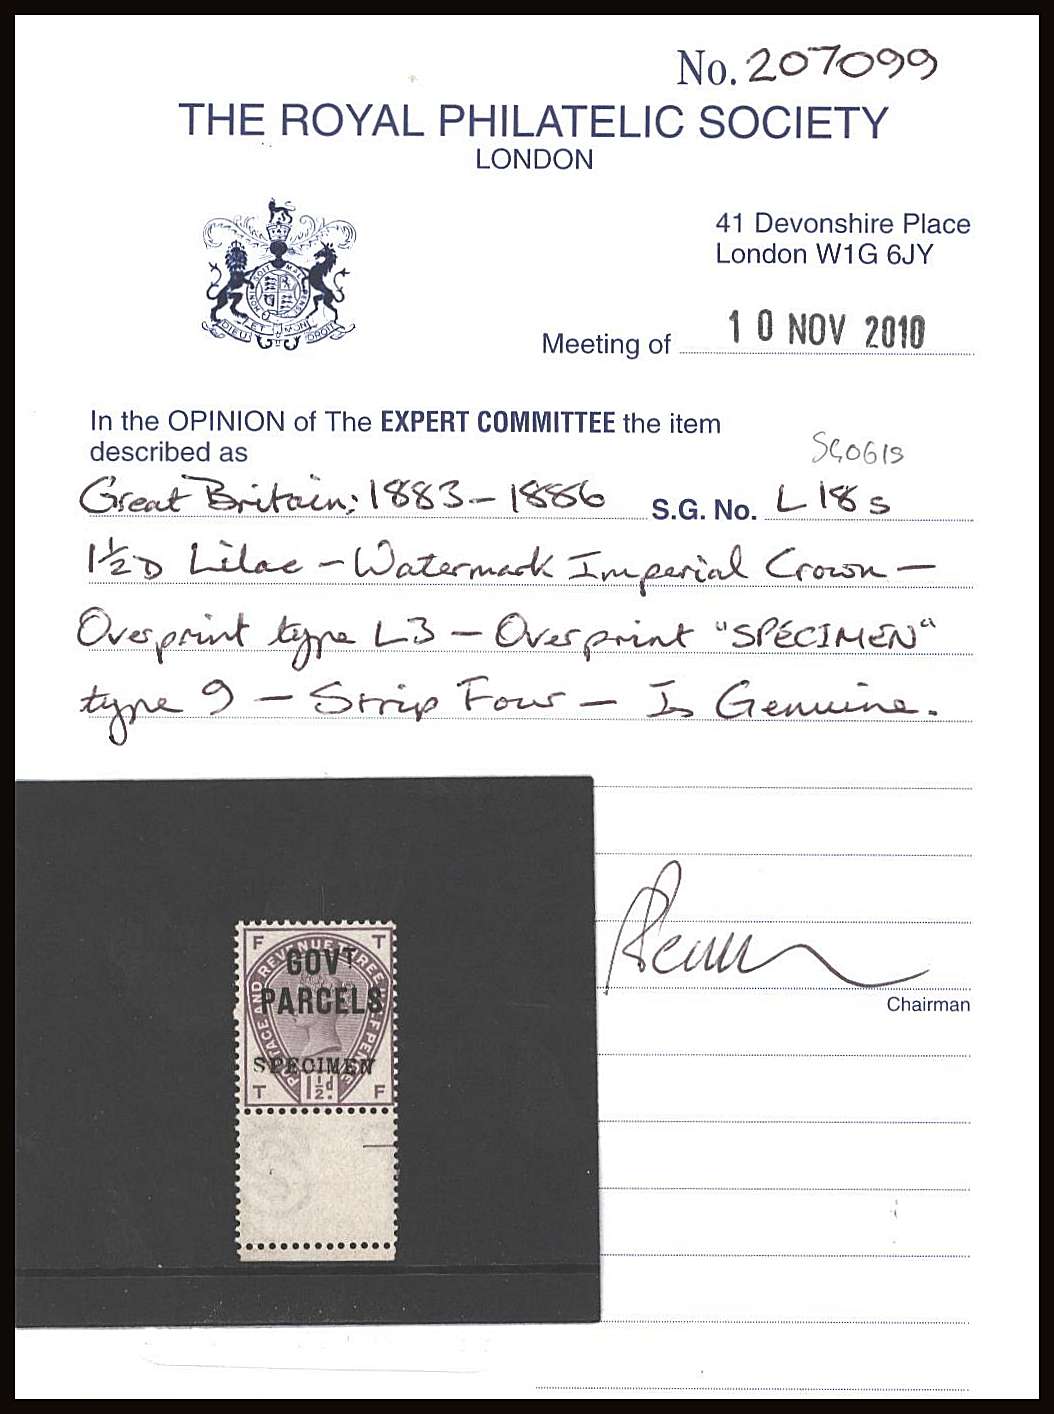 No. 207099
THE ROYAL PHILATELIC SOCIETY
LONDON
41 Devonshire Place
London W1G 6JY
DIEU ET MON DROIT
Meeting of 10 NOV 2010
In the OPINION of The EXPERT COMMITTEE the item
described as
SGO61s
Great Britain: 1883 - 1886 S.G. No. L18s
1½D Lilac - Watermark Imperial Crown -
Overprint type L3 - Overprint "SPECIMEN"
type 9 - Strip Four - Is Genuine.
Chairman
F T
POSTAGE AND REVENUE THREE HALF PENCE
GOVT
PARCELS
SPECIMEN
T 1½d. F